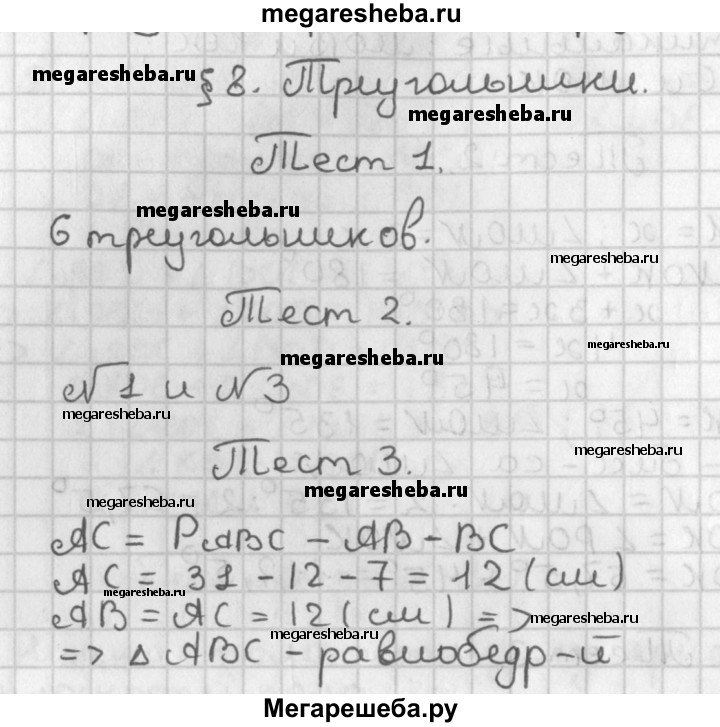 megaresheba.ru
megaresheba.ru
§ 8. Треугольники.
megaresheba.ru
Тест 1.
megaresheba.ru
6 треугольников.
megaresheba.ru
Тест 2.
megaresheba.ru
megaresheba.ru
№1 и №3
megaresheba.ru
Тест 3.
megaresheba.ru
megaresheba.ru
megaresheba.ru
AC = PABC – AB – BC
AC = 31 – 12 – 7 = 12 (см)
megaresheba.ru
AB = AC = 12 (см) =>
megaresheba.ru
megaresheba.ru
=> Δ ABC – равнобедр-й
Мегарешеба.ру